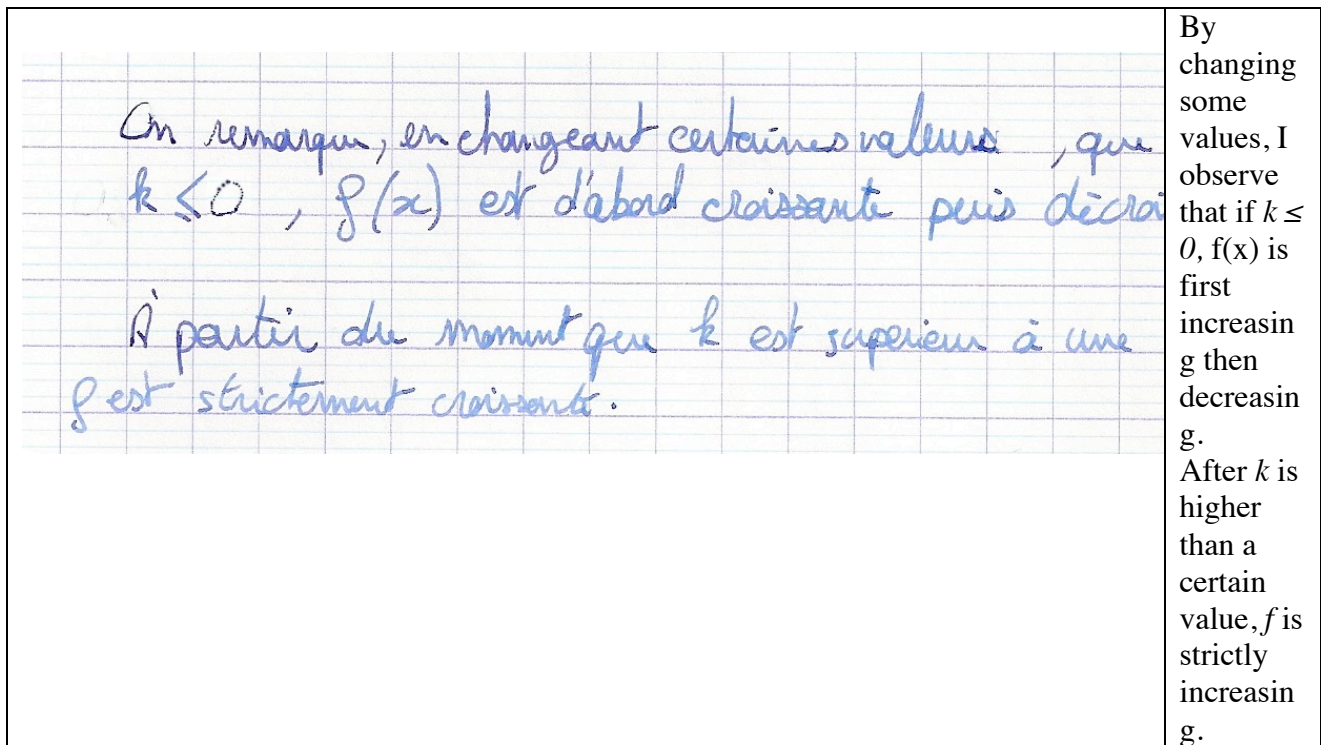 On remarque, en changeant certaines valeurs, que
k ≤ 0, f(x) est d'abord croissante puis décroi
À partir du moment que k est supérieur à une
f est strictement croissante.
By
changing
some
values, I
observe
that if k ≤
0, f(x) is
first
increasin
g then
decreasin
g.
After k is
higher
than a
certain
value, f is
strictly
increasin
g.